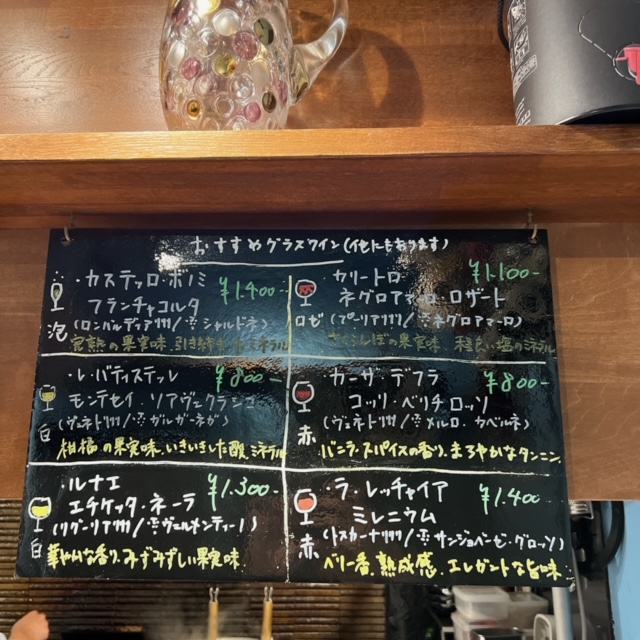 おすすめグラスワイン(他にもあります)
・カステッロ・ボノミ ¥1.400-
フランチャコルタ
泡 (ロンバルディア州/シャルドネ)
完熟の果実味.引き締まったミネラル
・レ・バティステッレ ¥800-
モンテセイ・ソアヴェクラシコ
白 (ヴェネト州/ガルガーネガ)
柑橘の果実味.いきいきした酸.ミネラル
・ルナエ ¥1.300-
エチケッタ・ネーラ
白 (リグーリア州/ヴェルメンティーノ)
華やかな香り.みずみずしい果実味
・カリートロ ¥1.100-
ネグロアマーロ・ロザート
ロゼ (プーリア州/ネグロアマーロ)
さくらんぼの果実味.程良い塩のミネラル
・カーサ・デフラ ¥800-
コッリ・ベリチ ロッソ
赤 (ヴェネト州/メルロ.カベルネ)
バニラ.スパイスの香り.まろやかなタンニン.
・ラ・レッチャイア ¥1.400-
ミレニウム
赤 (トスカーナ州/サンジョベーゼ・グロッソ)
ベリー香.熟成感.エレガントな旨味